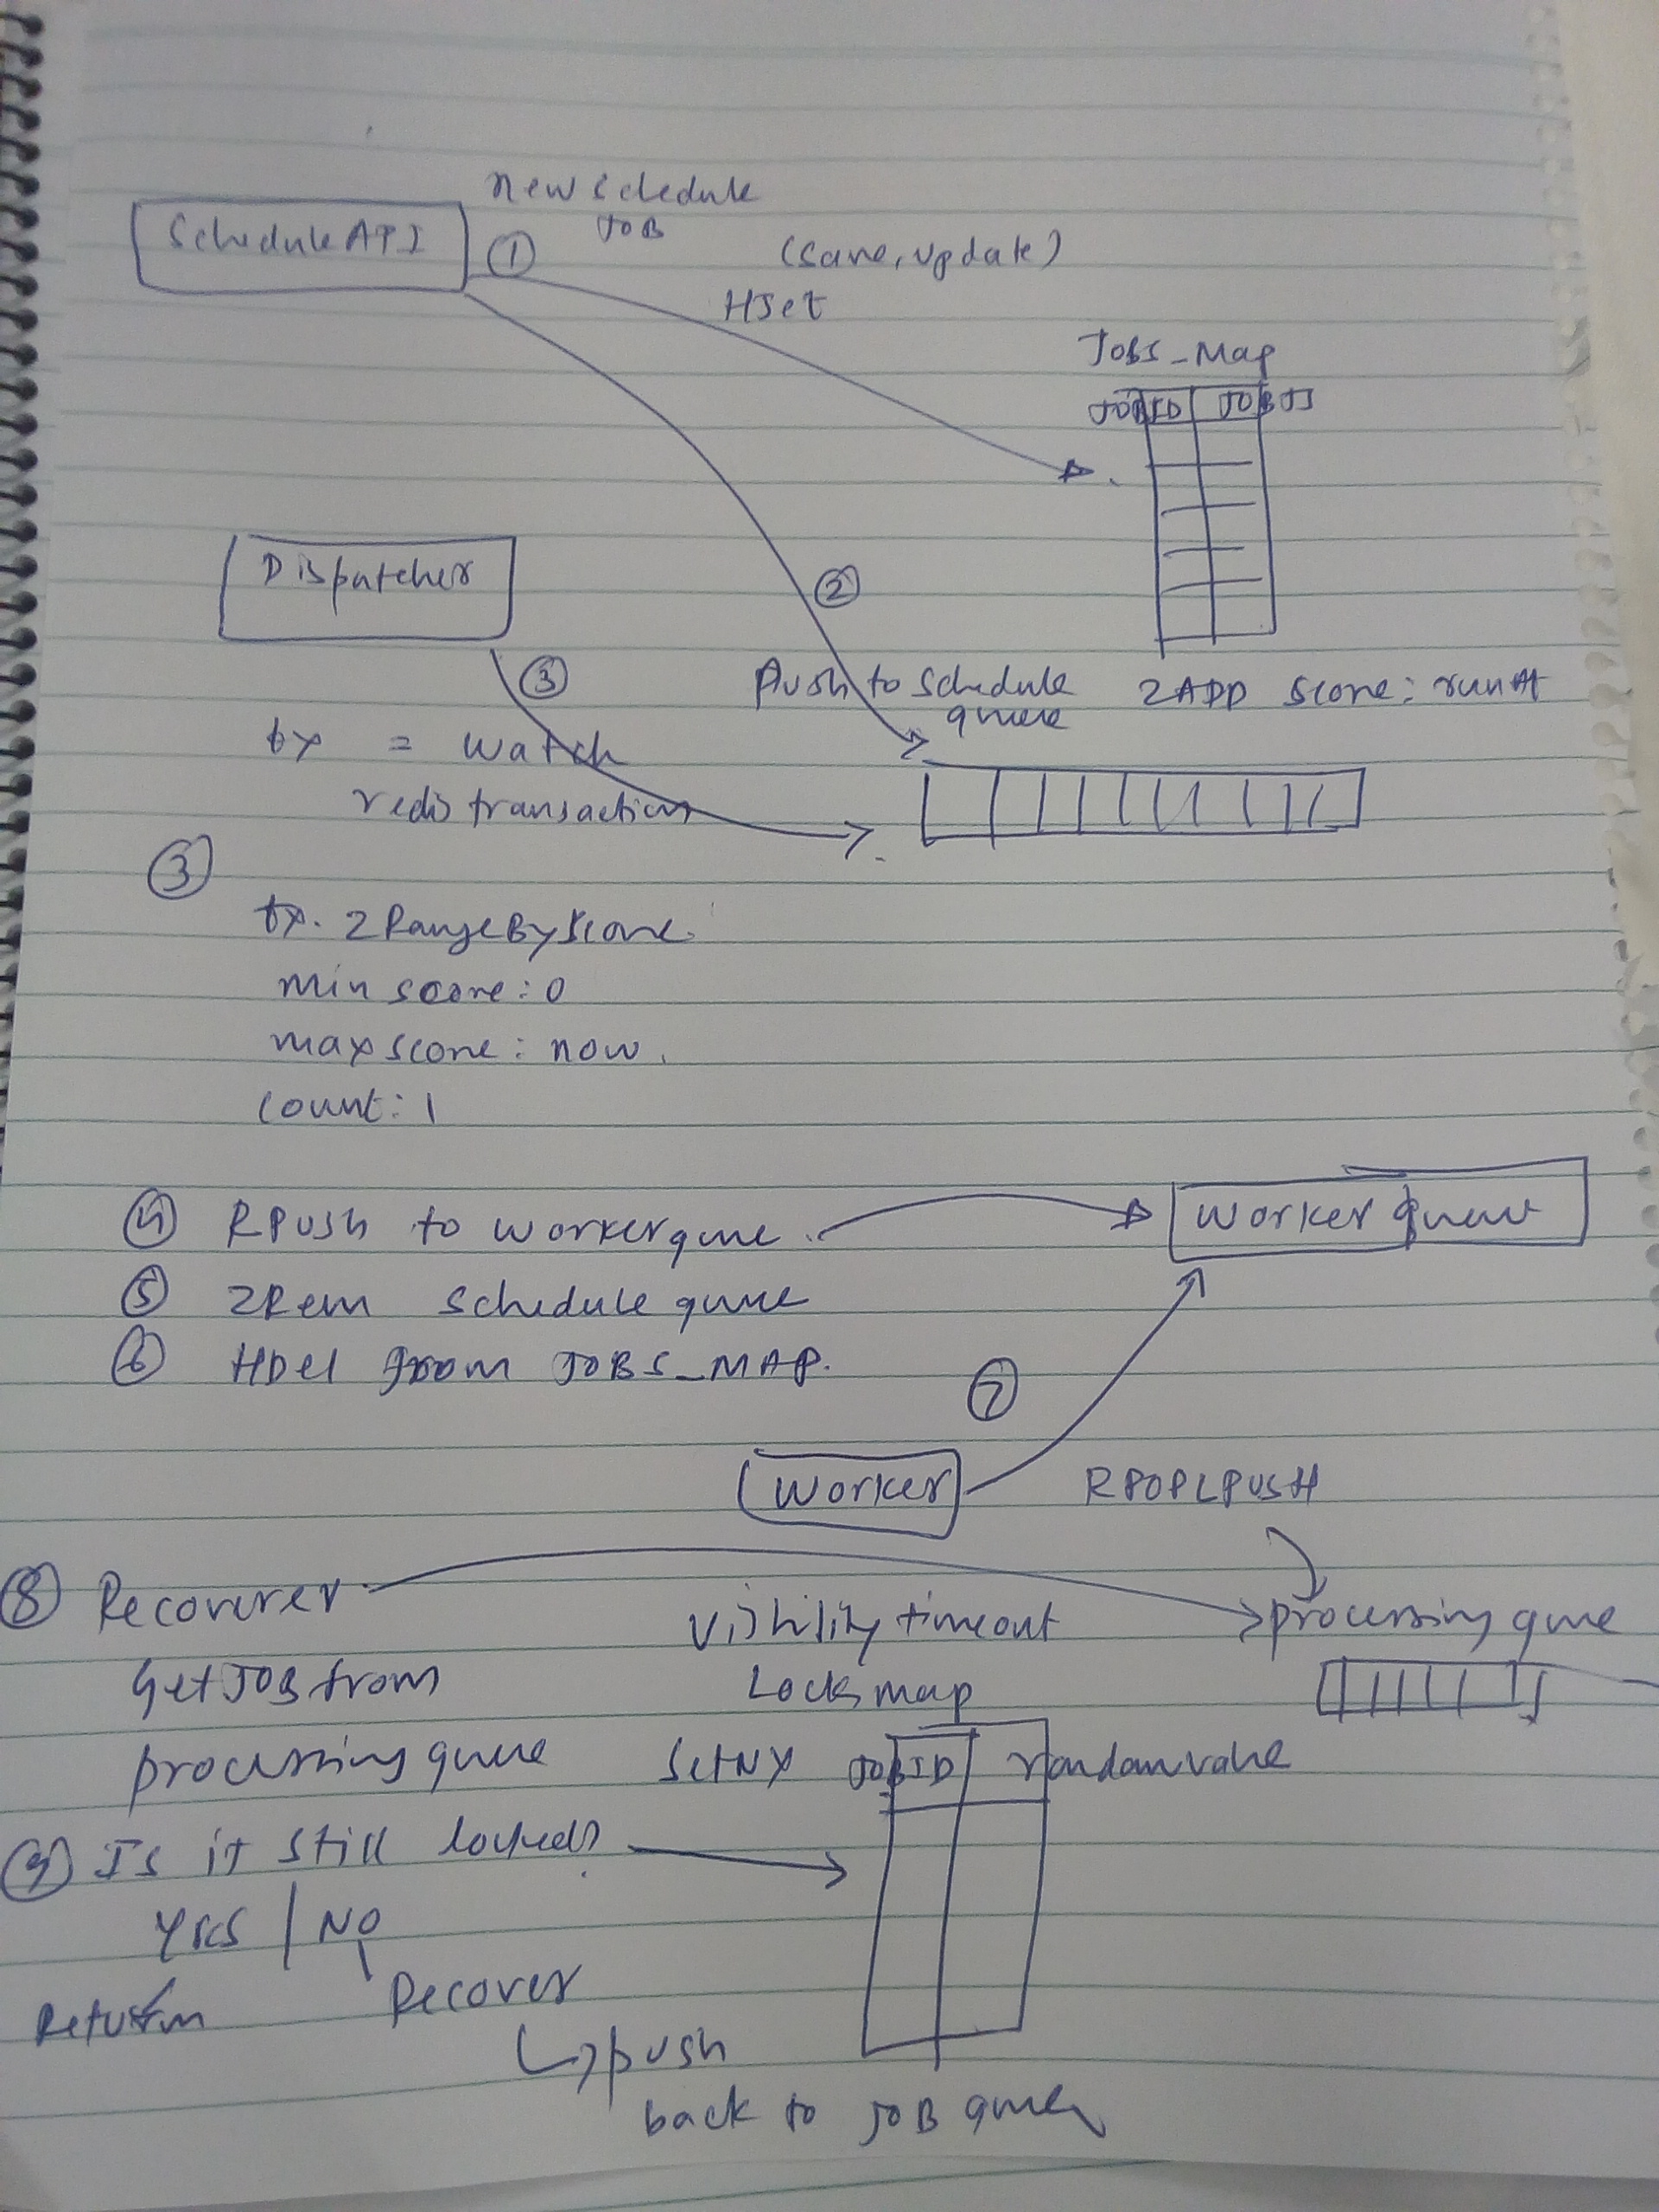 new schedule
JOB
ScheduleAPI
①
(save, update)
HSet
JOBS_Map
JOBID JOBJS
Dispatcher
②
③
Push to schedule queue ZADD score: runAt
tx = watch
redis transaction
③
tx. ZRangeByScore
min score: 0
max score: now.
count: 1
④ RPush to workerqueue
Worker queue
⑤ ZRem schedule queue
⑥ HDel from JOBS_MAP.
⑦
Worker
RPOPLPUSH
⑧ Recoverer
processing queue
Visibility timeout
Get JOB from
Locks map
processing queue
SetNX JOBID random value
⑨ Is it still locked?
Yes / NO
Return
Recover
push
back to JOB queue